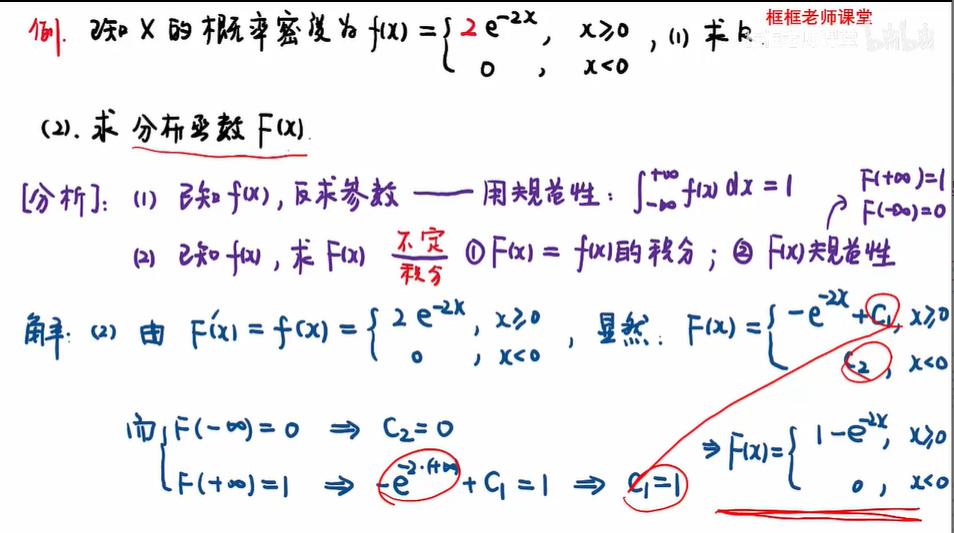 框框老师课堂
例. 已知 X 的概率密度为 f(x) = { 2 e^{-2x}, x≥0 ; 0, x<0 , (1) 求 k.
(2). 求 分布函数 F(x).
[分析]: (1) 已知 f(x), 反求参数 —— 用规范性: ∫_{-∞}^{+∞} f(x) dx = 1
F(+∞)=1
F(-∞)=0
(2) 已知 f(x), 求 F(x) 不定积分 ① F(x) = f(x)的积分; ② F(x)规范性
解: (2) 由 F'(x) = f(x) = { 2 e^{-2x}, x≥0 ; 0, x<0 , 显然: F(x) = { -e^{-2x} + C₁, x≥0 ; C₂, x<0
而 { F(-∞) = 0 ⇒ C₂ = 0
F(+∞) = 1 ⇒ -e^{-2·(+∞)} + C₁ = 1 ⇒ C₁ = 1
⇒ F(x) = { 1 - e^{-2x}, x≥0 ; 0, x<0